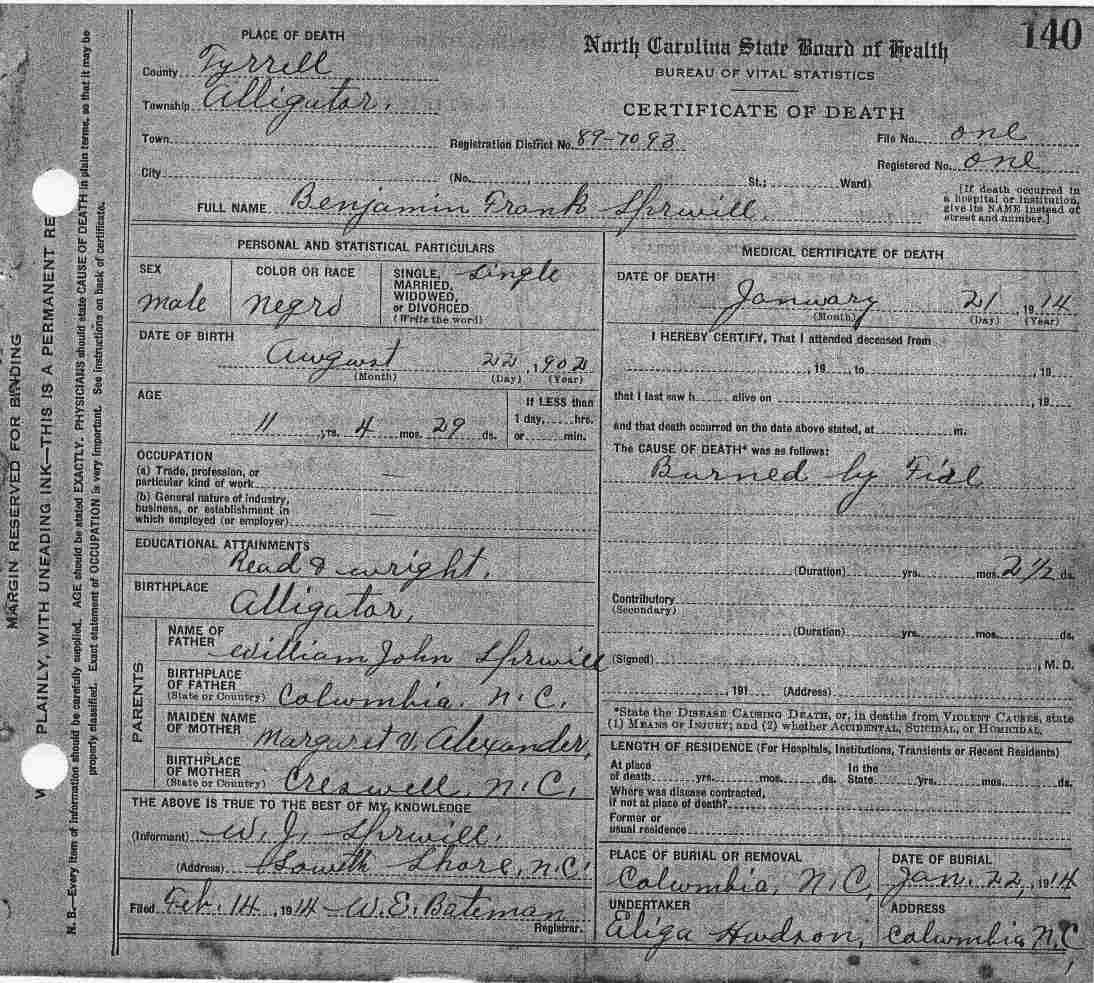 140
PLACE OF DEATH
County Tyrrell
Township Alligator.
Town
City
North Carolina State Board of Health
BUREAU OF VITAL STATISTICS
CERTIFICATE OF DEATH
Registration District No. 89-7093
File No. one
Registered No. one
(No. , St.; Ward)
[If death occurred in a hospital or institution, give its NAME instead of street and number.]
FULL NAME Benjamin Frank Sprwill.
MARGIN RESERVED FOR BINDING
PLAINLY, WITH UNFADING INK—THIS IS A PERMANENT RE
N. B.—Every item of information should be carefully supplied. AGE should be stated EXACTLY. PHYSICIANS should state CAUSE OF DEATH in plain terms, so that it may be
properly classified. Exact statement of OCCUPATION is very important. See instructions on back of certificate.
PERSONAL AND STATISTICAL PARTICULARS
SEX
male
COLOR OR RACE
negro
SINGLE, single
MARRIED,
WIDOWED,
or DIVORCED
(Write the word)
DATE OF BIRTH
Awgwst 22, 1902
(Month) (Day) (Year)
AGE
11 yrs. 4 mos. 29 ds.
If LESS than
1 day, hrs.
or min.
OCCUPATION
(a) Trade, profession, or
particular kind of work —
(b) General nature of industry,
business, or establishment in
which employed (or employer) —
EDUCATIONAL ATTAINMENTS
Read & wright.
BIRTHPLACE
Alligator,
PARENTS
NAME OF
FATHER William John Sprwill
BIRTHPLACE
OF FATHER
(State or Country) Colwmbia, N.C.
MAIDEN NAME
OF MOTHER Margaret V. Alexander,
BIRTHPLACE
OF MOTHER
(State or Country) Creswell, N.C.
THE ABOVE IS TRUE TO THE BEST OF MY KNOWLEDGE
(Informant) W. J. Sprwill.
(Address) Sowth Shore, N.C.
Filed Feb. 14, 1914 W. E. Bateman
Registrar.
MEDICAL CERTIFICATE OF DEATH
DATE OF DEATH
Janwary 21, 1914
(Month) (Day) (Year)
I HEREBY CERTIFY, That I attended deceased from
, 19 , to , 19
that I last saw h alive on , 19
and that death occurred on the date above stated, at m.
The CAUSE OF DEATH* was as follows:
Bwrned by Fial
(Duration) yrs. mos. 2 1/2 ds.
Contributory
(Secondary)
(Duration) yrs. mos. ds.
(Signed) , M. D.
, 191 (Address)
*State the DISEASE CAUSING DEATH, or, in deaths from VIOLENT CAUSES, state
(1) MEANS OF INJURY; and (2) whether ACCIDENTAL, SUICIDAL, OR HOMICIDAL.
LENGTH OF RESIDENCE (For Hospitals, Institutions, Transients or Recent Residents)
At place
of death yrs. mos. ds.
In the
State yrs. mos. ds.
Where was disease contracted,
if not at place of death?
Former or
usual residence
PLACE OF BURIAL OR REMOVAL
Colwmbia, N.C.
DATE OF BURIAL
Jan. 22, 1914
UNDERTAKER
Eliga Hwdson,
ADDRESS
Colwmbia N.C.